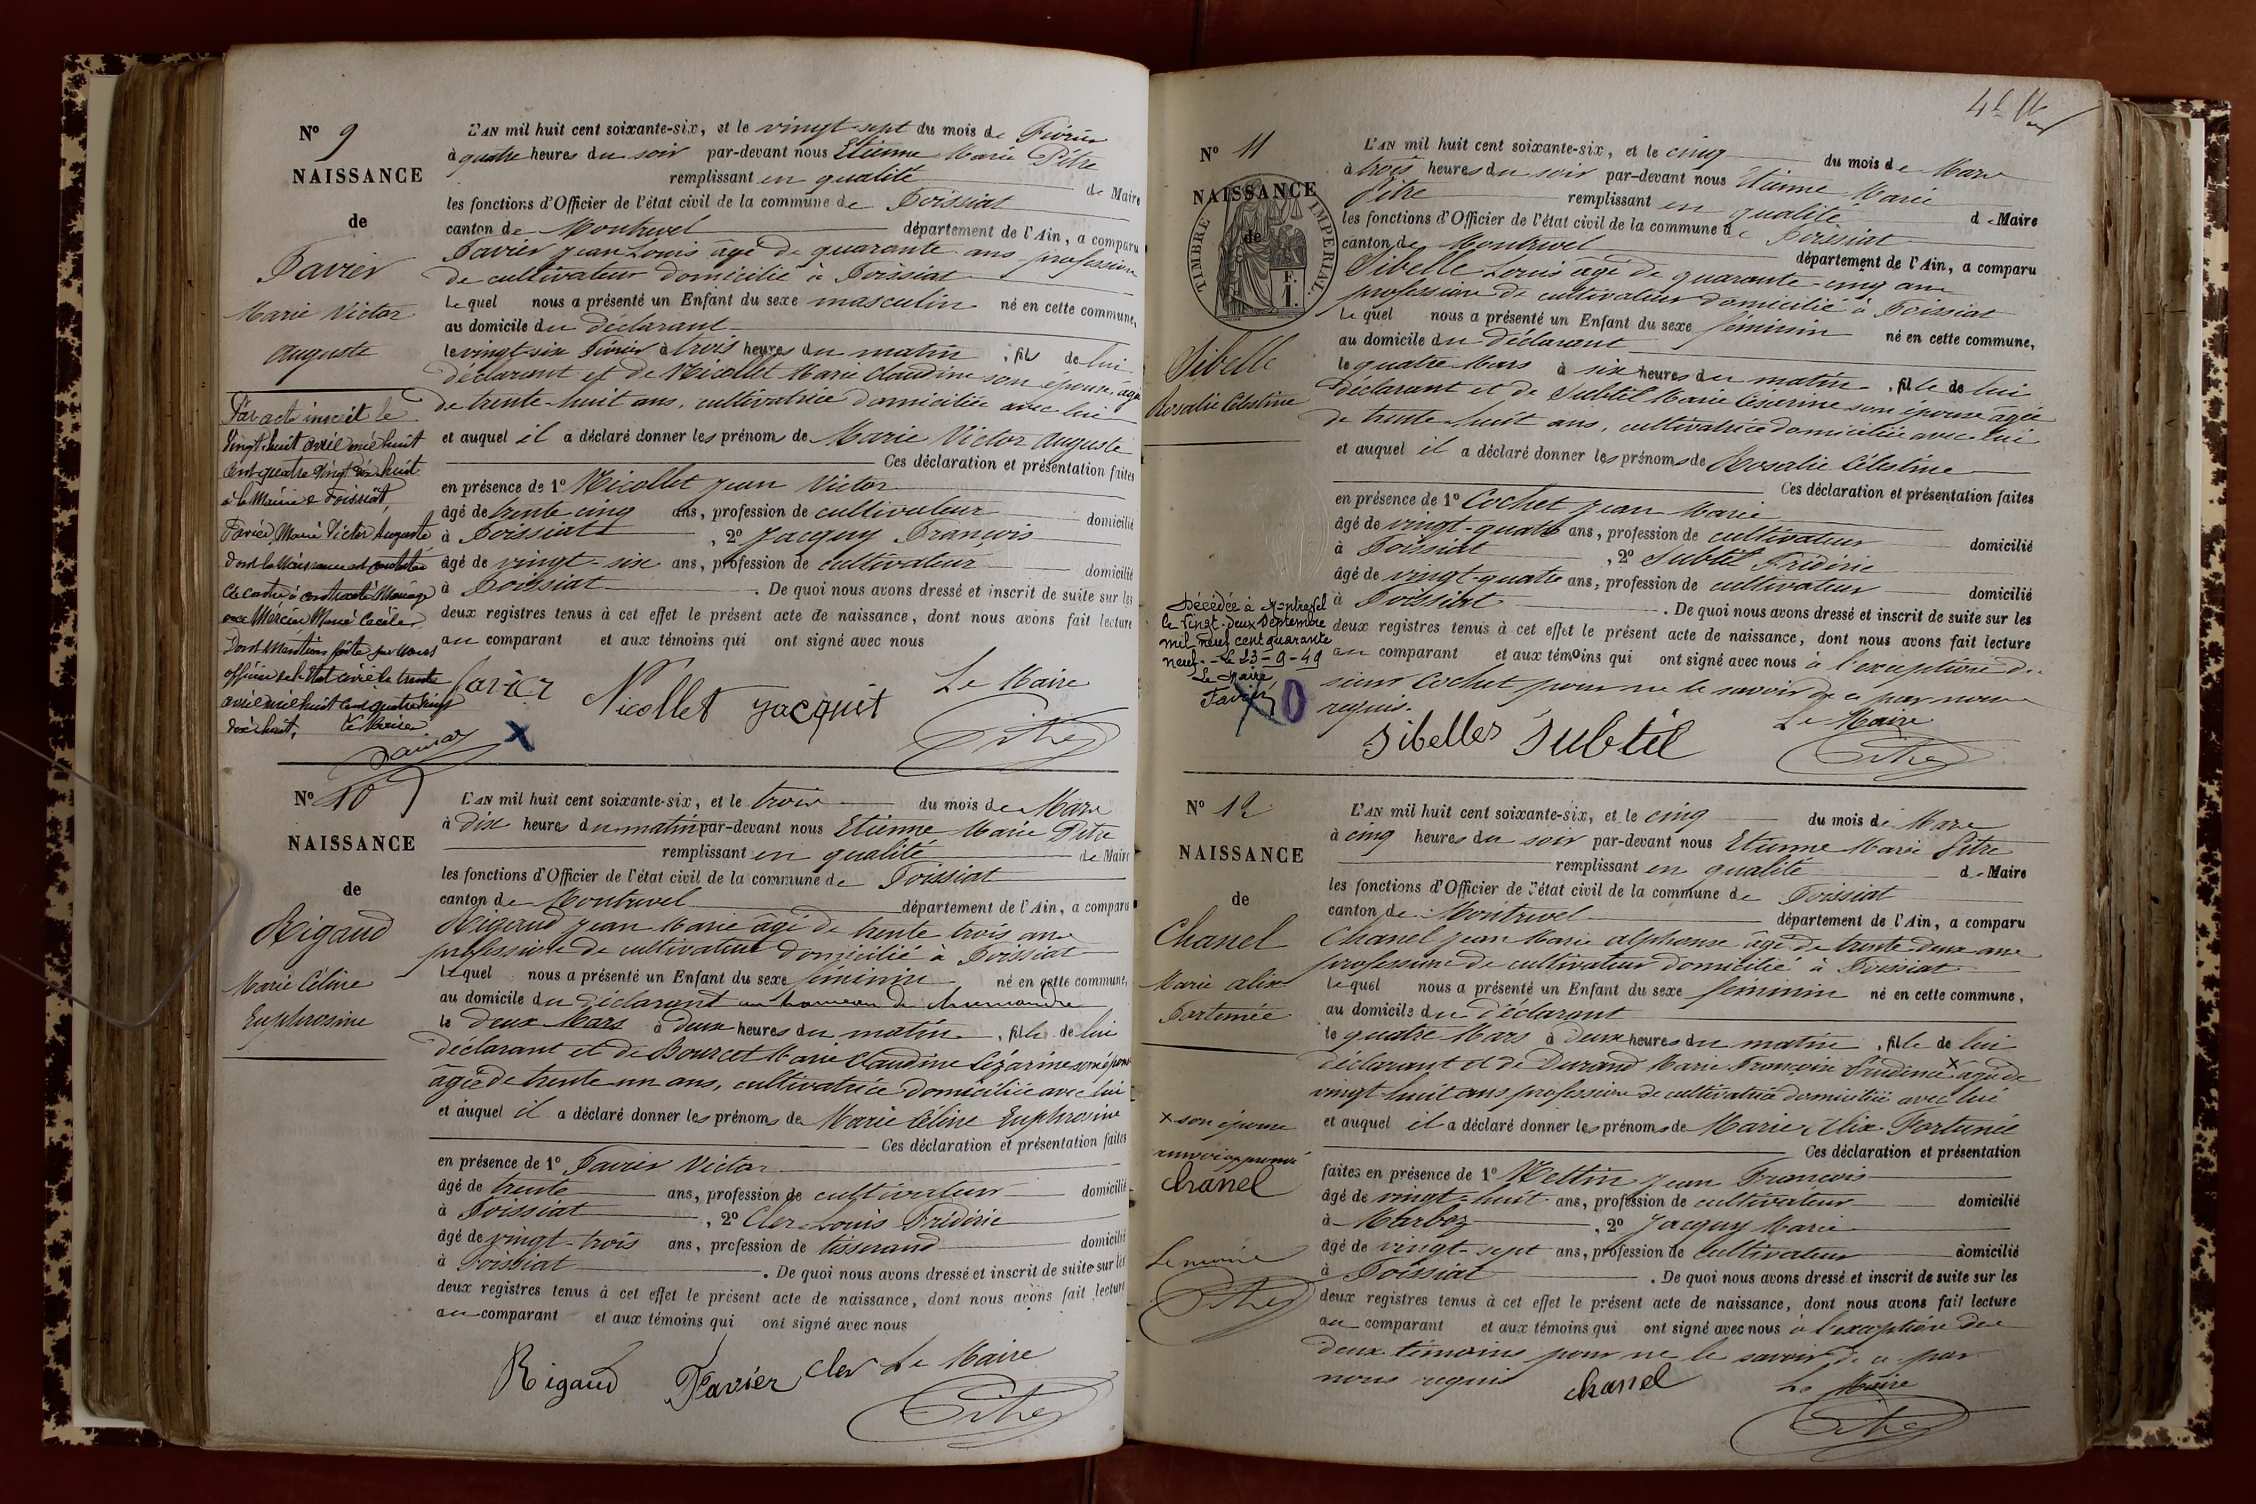 N° 9
NAISSANCE
de
Favier
Marie Victor
Auguste
Par acte inscrit le
vingt-huit avril mil huit
cent quatre vingt dix huit
à la Mairie de Foissiat,
Favier Marie Victor Auguste
dont la Naissance est constatée
ci contre à contracté Mariage
avec Mercier Marie Cécile
Dont Mention faite par Nous
officier de l'Etat civil le trente
avril mil huit cent quatre vingt
dix huit. Le Maire
L'AN mil huit cent soixante-six, et le vingt-sept du mois de Février
à quatre heures du soir par-devant nous Etienne Marie Pitre
remplissant en qualité de Maire
les fonctions d'Officier de l'état civil de la commune de Foissiat
canton de Montrevel département de l'Ain, a comparu
Favier Jean Louis âgé de quarante ans profession
de cultivateur domicilié à Foissiat
Lequel nous a présenté un Enfant du sexe masculin né en cette commune,
au domicile du déclarant
le vingt-six Février à trois heures du matin, fils de lui
déclarant et de Nicollet Marie Claudine son épouse, âgée
de trente-huit ans, cultivatrice domiciliée avec lui
et auquel il a déclaré donner les prénoms de Marie Victor Auguste
Ces déclaration et présentation faites
en présence de 1° Nicollet Jean Victor
âgé de trente cinq ans, profession de cultivateur domicilié
à Foissiat, 2° Jacquy François
âgé de vingt-six ans, profession de cultivateur domicilié
à Foissiat. De quoi nous avons dressé et inscrit de suite sur les
deux registres tenus à cet effet le présent acte de naissance, dont nous avons fait lecture
au comparant et aux témoins qui ont signé avec nous
Favier Nicollet Jacquit Le Maire
Pitre
N° 10
NAISSANCE
de
Rigaud
Marie Céline
Euphrosine
L'AN mil huit cent soixante-six, et le trois du mois de Mars
à dix heures du matin par-devant nous Etienne Marie Pitre
remplissant en qualité de Maire
les fonctions d'Officier de l'état civil de la commune de Foissiat
canton de Montrevel département de l'Ain, a comparu
Rigaud Jean Marie âgé de trente trois ans
profession de cultivateur domicilié à Foissiat
Lequel nous a présenté un Enfant du sexe féminin né en cette commune,
au domicile du déclarant au hameau de
le deux Mars à deux heures du matin, fille de lui
déclarant et de Bourcet Marie Claudine Cézarine son épouse
âgée de trente un ans, cultivatrice domiciliée avec lui
et auquel il a déclaré donner les prénoms de Marie Céline Euphrosine
Ces déclaration et présentation faites
en présence de 1° Favier Victor
âgé de trente ans, profession de cultivateur domicilié
à Foissiat, 2° Cler Louis Frédéric
âgé de vingt-trois ans, profession de tisserand domicilié
à Foissiat. De quoi nous avons dressé et inscrit de suite sur les
deux registres tenus à cet effet le présent acte de naissance, dont nous avons fait lecture
au comparant et aux témoins qui ont signé avec nous
Rigaud Favier Cler Le Maire
Pitre
N° 11
NAISSANCE
de
TIMBRE IMPERIAL
F.
1.
Sibelle
Rosalie Célestine
Décédée à Montrevel
le vingt-deux Septembre
mil neuf cent quarante
neuf. - Le 23-9-49
Le Maire
Favier
L'AN mil huit cent soixante-six, et le cinq du mois de Mars
à trois heures du soir par-devant nous Etienne Marie
Pitre remplissant en qualité de Maire
les fonctions d'Officier de l'état civil de la commune de Foissiat
canton de Montrevel département de l'Ain, a comparu
Sibelle Louis âgé de quarante-cinq ans
profession de cultivateur domicilié à Foissiat
Lequel nous a présenté un Enfant du sexe féminin né en cette commune,
au domicile du déclarant
le quatre Mars à six heures du matin, fille de lui
déclarant et de Subtil Marie Césarine son épouse âgée
de trente-huit ans, cultivatrice domiciliée avec lui
et auquel il a déclaré donner les prénoms de Rosalie Célestine
Ces déclaration et présentation faites
en présence de 1° Cochet Jean Marie
âgé de vingt-quatre ans, profession de cultivateur domicilié
à Foissiat, 2° Subtil Frédéric
âgé de vingt-quatre ans, profession de cultivateur domicilié
à Foissiat. De quoi nous avons dressé et inscrit de suite sur les
deux registres tenus à cet effet le présent acte de naissance, dont nous avons fait lecture
au comparant et aux témoins qui ont signé avec nous à l'exception du
sieur Cochet pour ne le savoir de ce par nous
requis.
Sibelles Subtil Le Maire
Pitre
N° 12
NAISSANCE
de
Chanel
Marie Alix
Fortunée
x son épouse
renvoi approuvé
Chanel
Le maire
Pitre
L'AN mil huit cent soixante-six, et le cinq du mois de Mars
à cinq heures du soir par-devant nous Etienne Marie Pitre
remplissant en qualité de Maire
les fonctions d'Officier de l'état civil de la commune de Foissiat
canton de Montrevel département de l'Ain, a comparu
Chanel Jean Marie Alphonse âgé de trente deux ans
profession de cultivateur domicilié à Foissiat
Lequel nous a présenté un Enfant du sexe féminin né en cette commune,
au domicile du déclarant
le quatre Mars à deux heures du matin, fille de lui
déclarant et de Durand Marie Françoise Prudence x âgée de
vingt huit ans profession de cultivatrice domiciliée avec lui
et auquel il a déclaré donner les prénoms de Marie Alix Fortunée
Ces déclaration et présentation
faites en présence de 1° Nettin Jean François
âgé de vingt-huit ans, profession de cultivateur domicilié
à Marboz, 2° Jacquy Marie
âgé de vingt-sept ans, profession de cultivateur domicilié
à Foissiat. De quoi nous avons dressé et inscrit de suite sur les
deux registres tenus à cet effet le présent acte de naissance, dont nous avons fait lecture
au comparant et aux témoins qui ont signé avec nous à l'exception des
deux témoins pour ne le savoir de ce par
nous requis Chanel Le Maire
Pitre